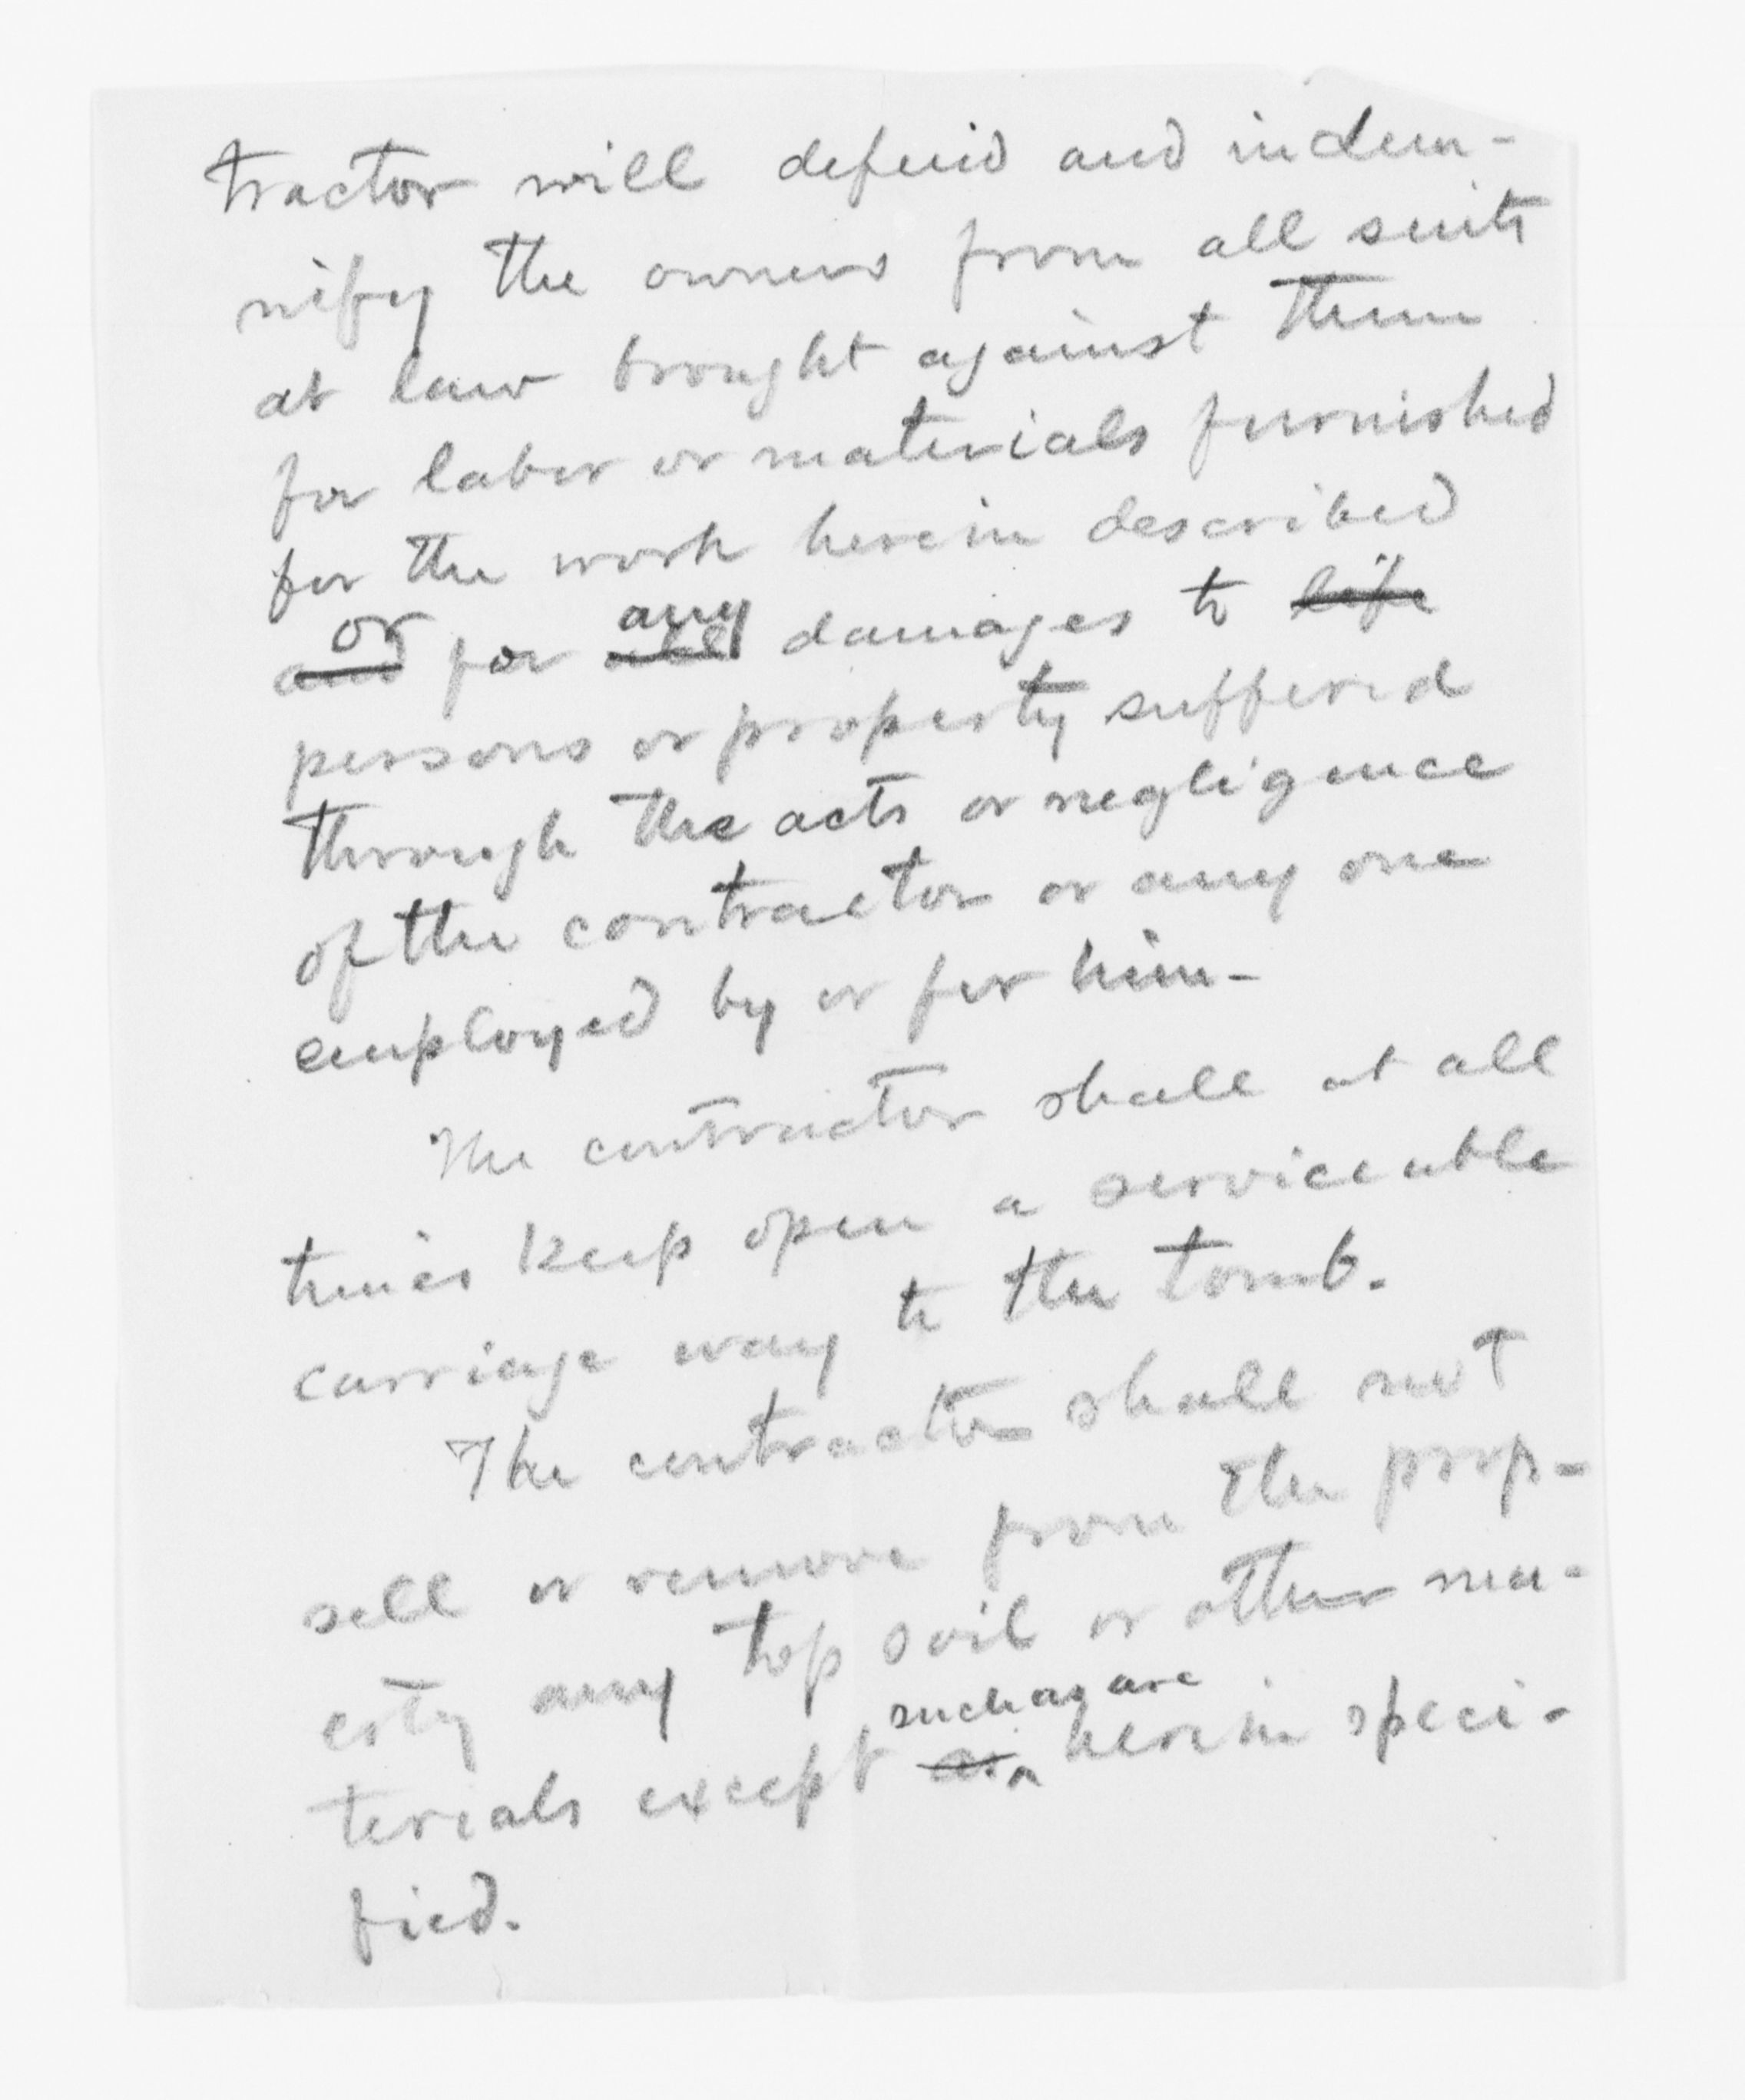 tractor will defend and indem-
nify the owners from all suits
at law brought against them
for labor or materials furnished
for the work herein described
or any
and for all damages to life
persons or property suffered
through the acts or negligence
of the contractor or any one
employed by or for him-
The contractor shall at all
times keep open a serviceable
carriage way to the tomb.
The contractor shall not
sell or remove from the prop-
erty any top soil or other ma-
such as are
terials except as herein speci-
fied.